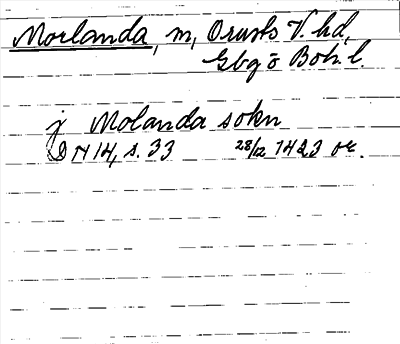 Morlanda, m, Orusts V. hd,
Gbg o Boh. l.
j Molanda sokn
DN 14, s. 33 28/12 1423 or.